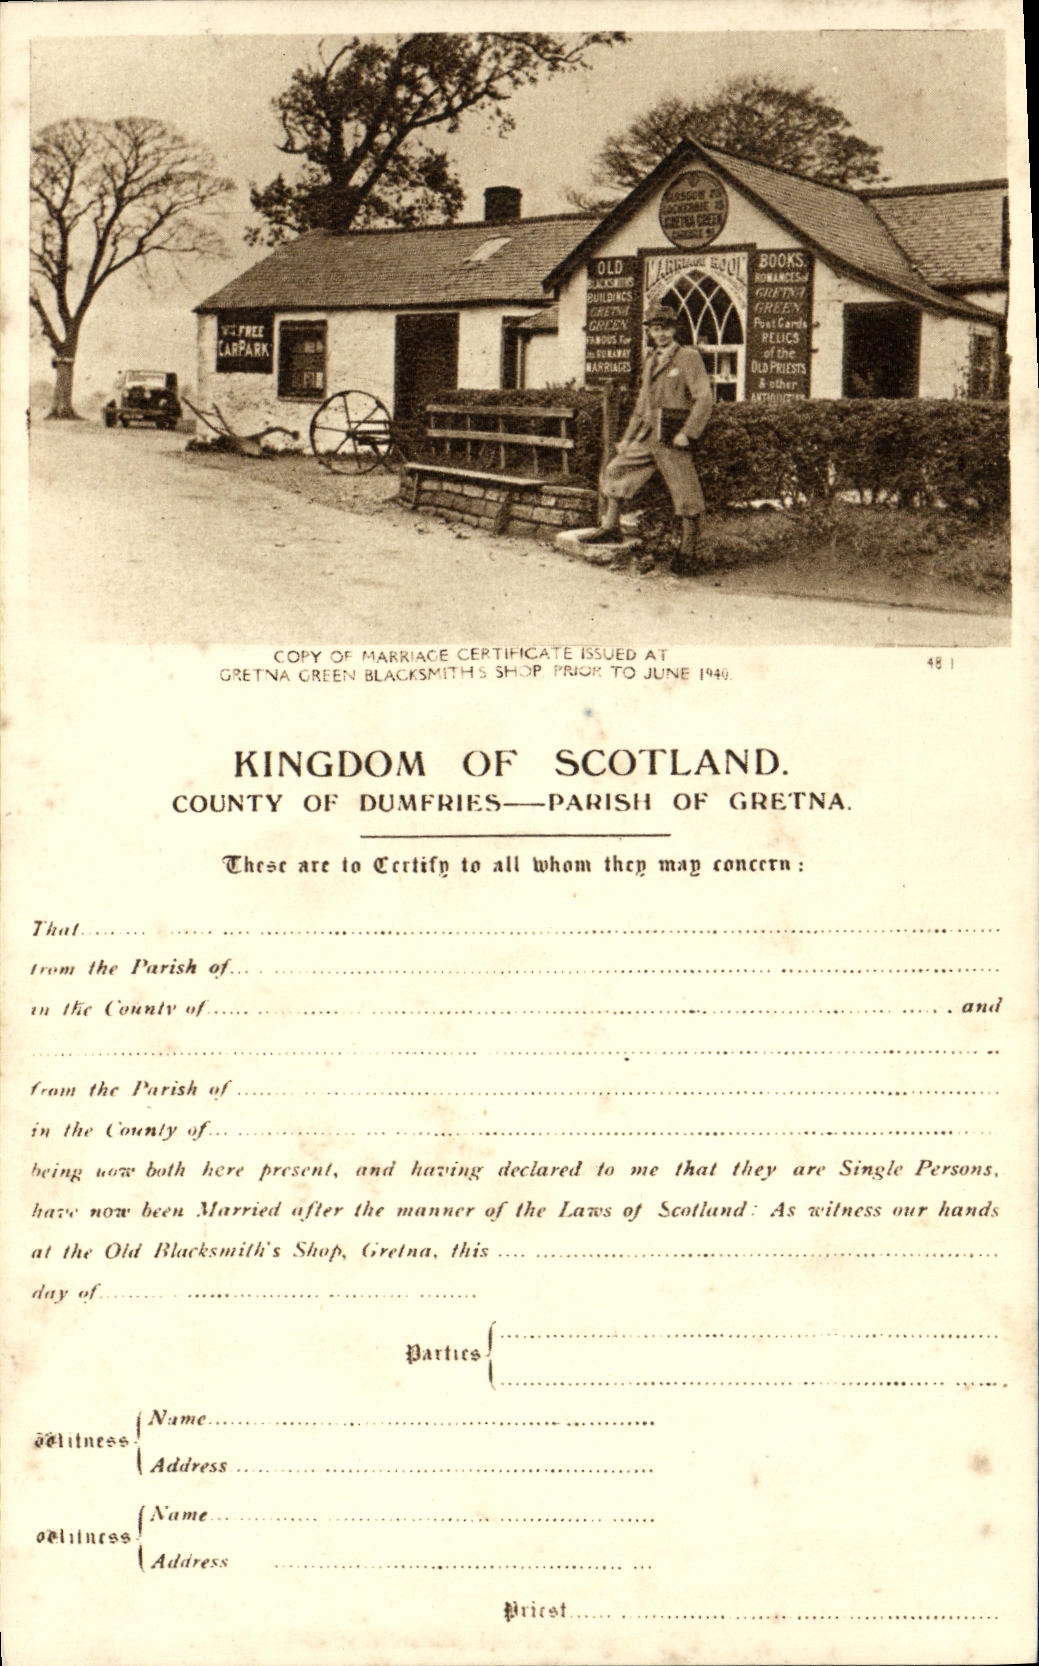 GLASGOW
GRETNA GREEN
OLD
BLACKSMITHS
BUILDINGS
GRETNA
GREEN
FAMOUS For
its RUNAWAY
MARRIAGES
MARRIAGE ROOM
BOOKS.
ROMANCES of
GRETNA
GREEN
Post Cards
RELICS
of the
OLD PRIESTS
& other
ANTIQUITIES
FREE
CAR PARK
COPY OF MARRIAGE CERTIFICATE ISSUED AT
GRETNA GREEN BLACKSMITH'S SHOP PRIOR TO JUNE 1940.
48 1
KINGDOM OF SCOTLAND.
COUNTY OF DUMFRIES—PARISH OF GRETNA.
These are to Certify to all whom they may concern:
That
from the Parish of
in the County of and
from the Parish of
in the County of
being now both here present, and having declared to me that they are Single Persons,
have now been Married after the manner of the Laws of Scotland: As witness our hands
at the Old Blacksmith's Shop, Gretna, this
day of
Parties
Witness
Name
Address
Witness
Name
Address
Priest